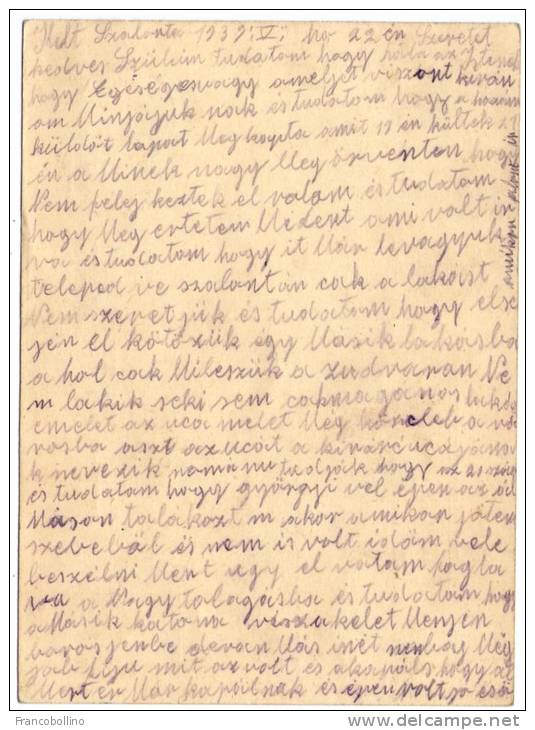 Kelt Szalonta 1939 V. hó 22 én Szeretet
kedves Szüleim tudatom hogy hála az Istenek
hogy Egiségesvagy amelyet viszont kiván
om Minyájuk nak és tudatom hogy a hozzám
küldöt lapot Meg kapta amit 19 én kültek 21
én a Minek nagy Meg örventen hogy
Nem felej keztek el rolam és tudatom
hogy Meg értetem Mident ami volt ir
va és tudatom hogy it Már levagyunk
teleped ve szalontán cak a lakást
Nem szeretjük és tudatom hogy else
jén el kötözük egy Másik lakásba
a hol cak Mi leszük a zudvaran Ne
m lakik seki sem
emelet az uca melet Még köreleb a vá
rosba aszt az ucát a kirárc uca jános
k nevezik tudják hogy az
és tudatom hogy györgyi vel épen az ál
Máson talákozt m akor amikor jötem
szebeből és nem is volt idóm vele
beszélni Mert ugy el voltam foglal
va a Nagy talagásba és tudatom hogy
a Másik katona visza kelet Menjen
borosjenbe de van Más inét Még
jab fiju mit az volt és a kapáls hogy ál
Mert ér Már kapálnak és épen volt jo eső
amikor
Francobollino
www.delcampe.net